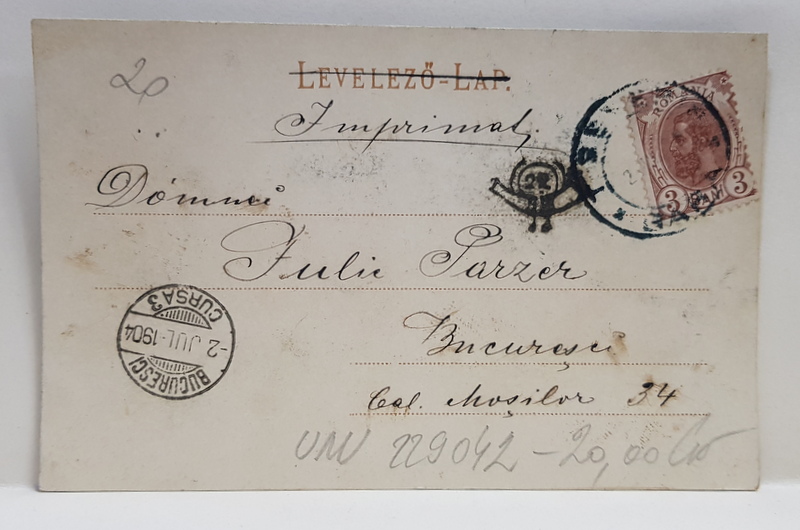 20
LEVELEZŐ-LAP.
Imprimat.
ROMANIA
3 BANI 3
Domnei
Julie Parzer
Bucuresci
Cal. Moșilor 34
BUCURESCI
-2 JUL-1904
CURSA 3
229042 - 20,00